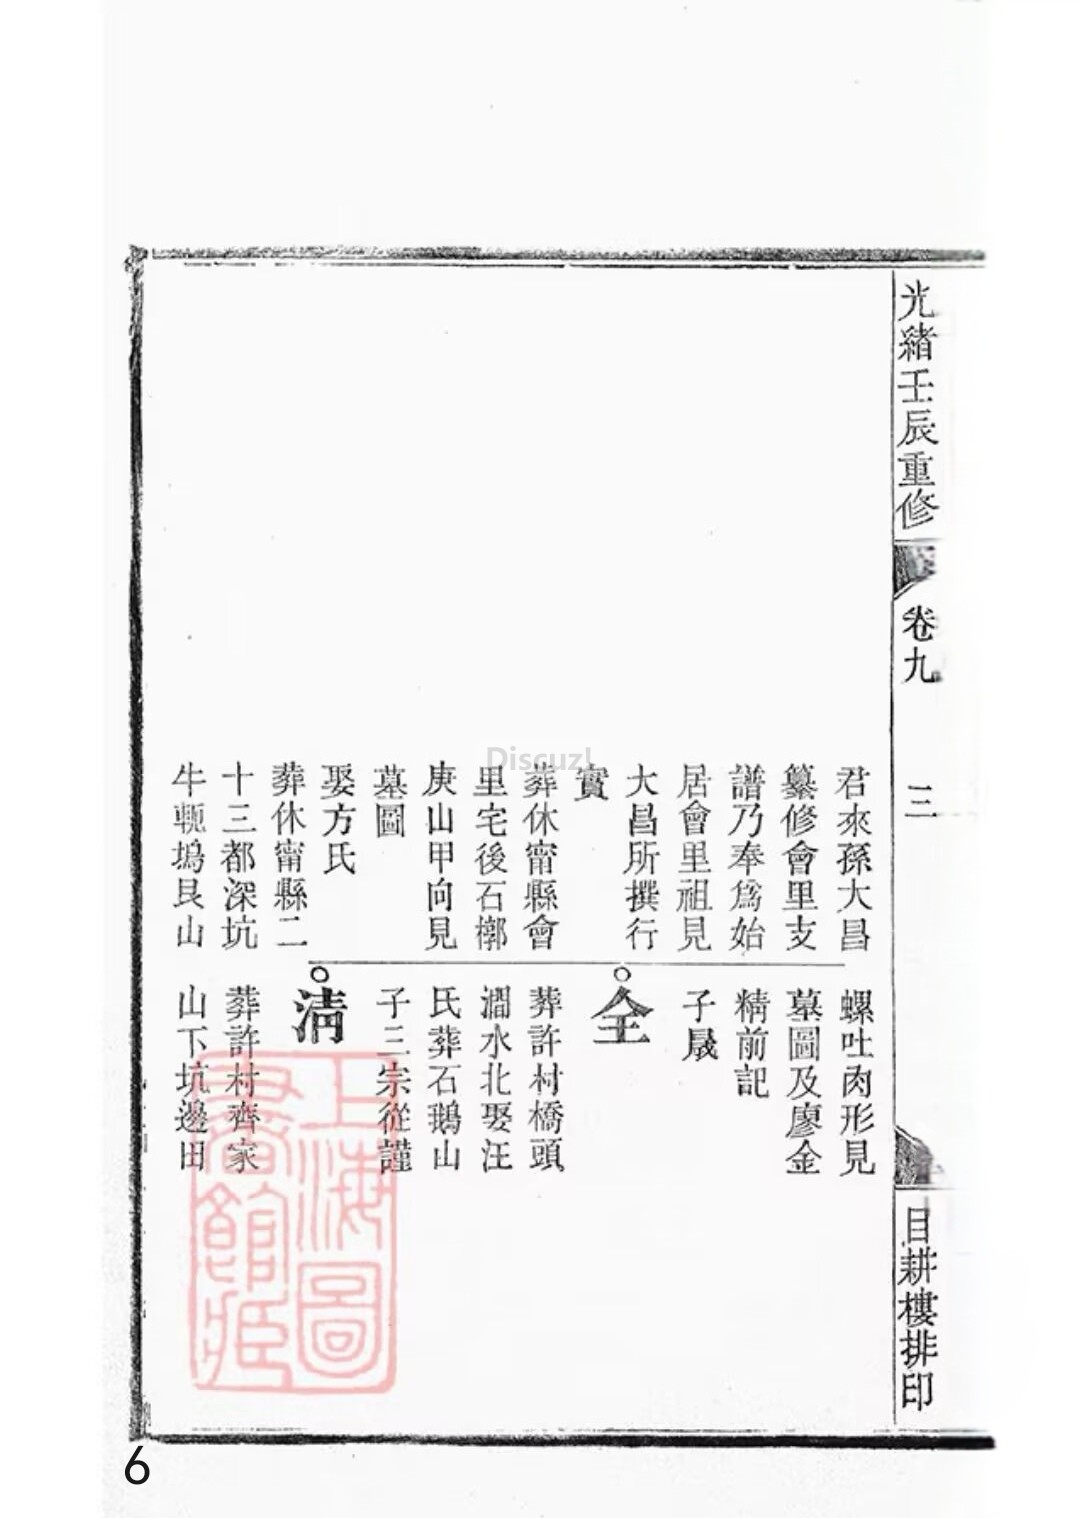 光緒壬辰重修
卷九
三
目耕樓排印
君來孫大昌
纂修會里支
譜乃奉爲始
居會里祖見
大昌所撰行
實
葬休甯縣會
里宅後石槨
庚山甲向見
墓圖
娶方氏
葬休甯縣二
十三都深坑
牛軛塢艮山
螺吐肉形見
墓圖及廖金
精前記
子晟
全
葬許村橋頭
澗水北娶汪
氏葬石鵝山
子三宗從謹
清
葬許村齊家
山下坑邊田
上海圖
書館藏
Discuz!
6